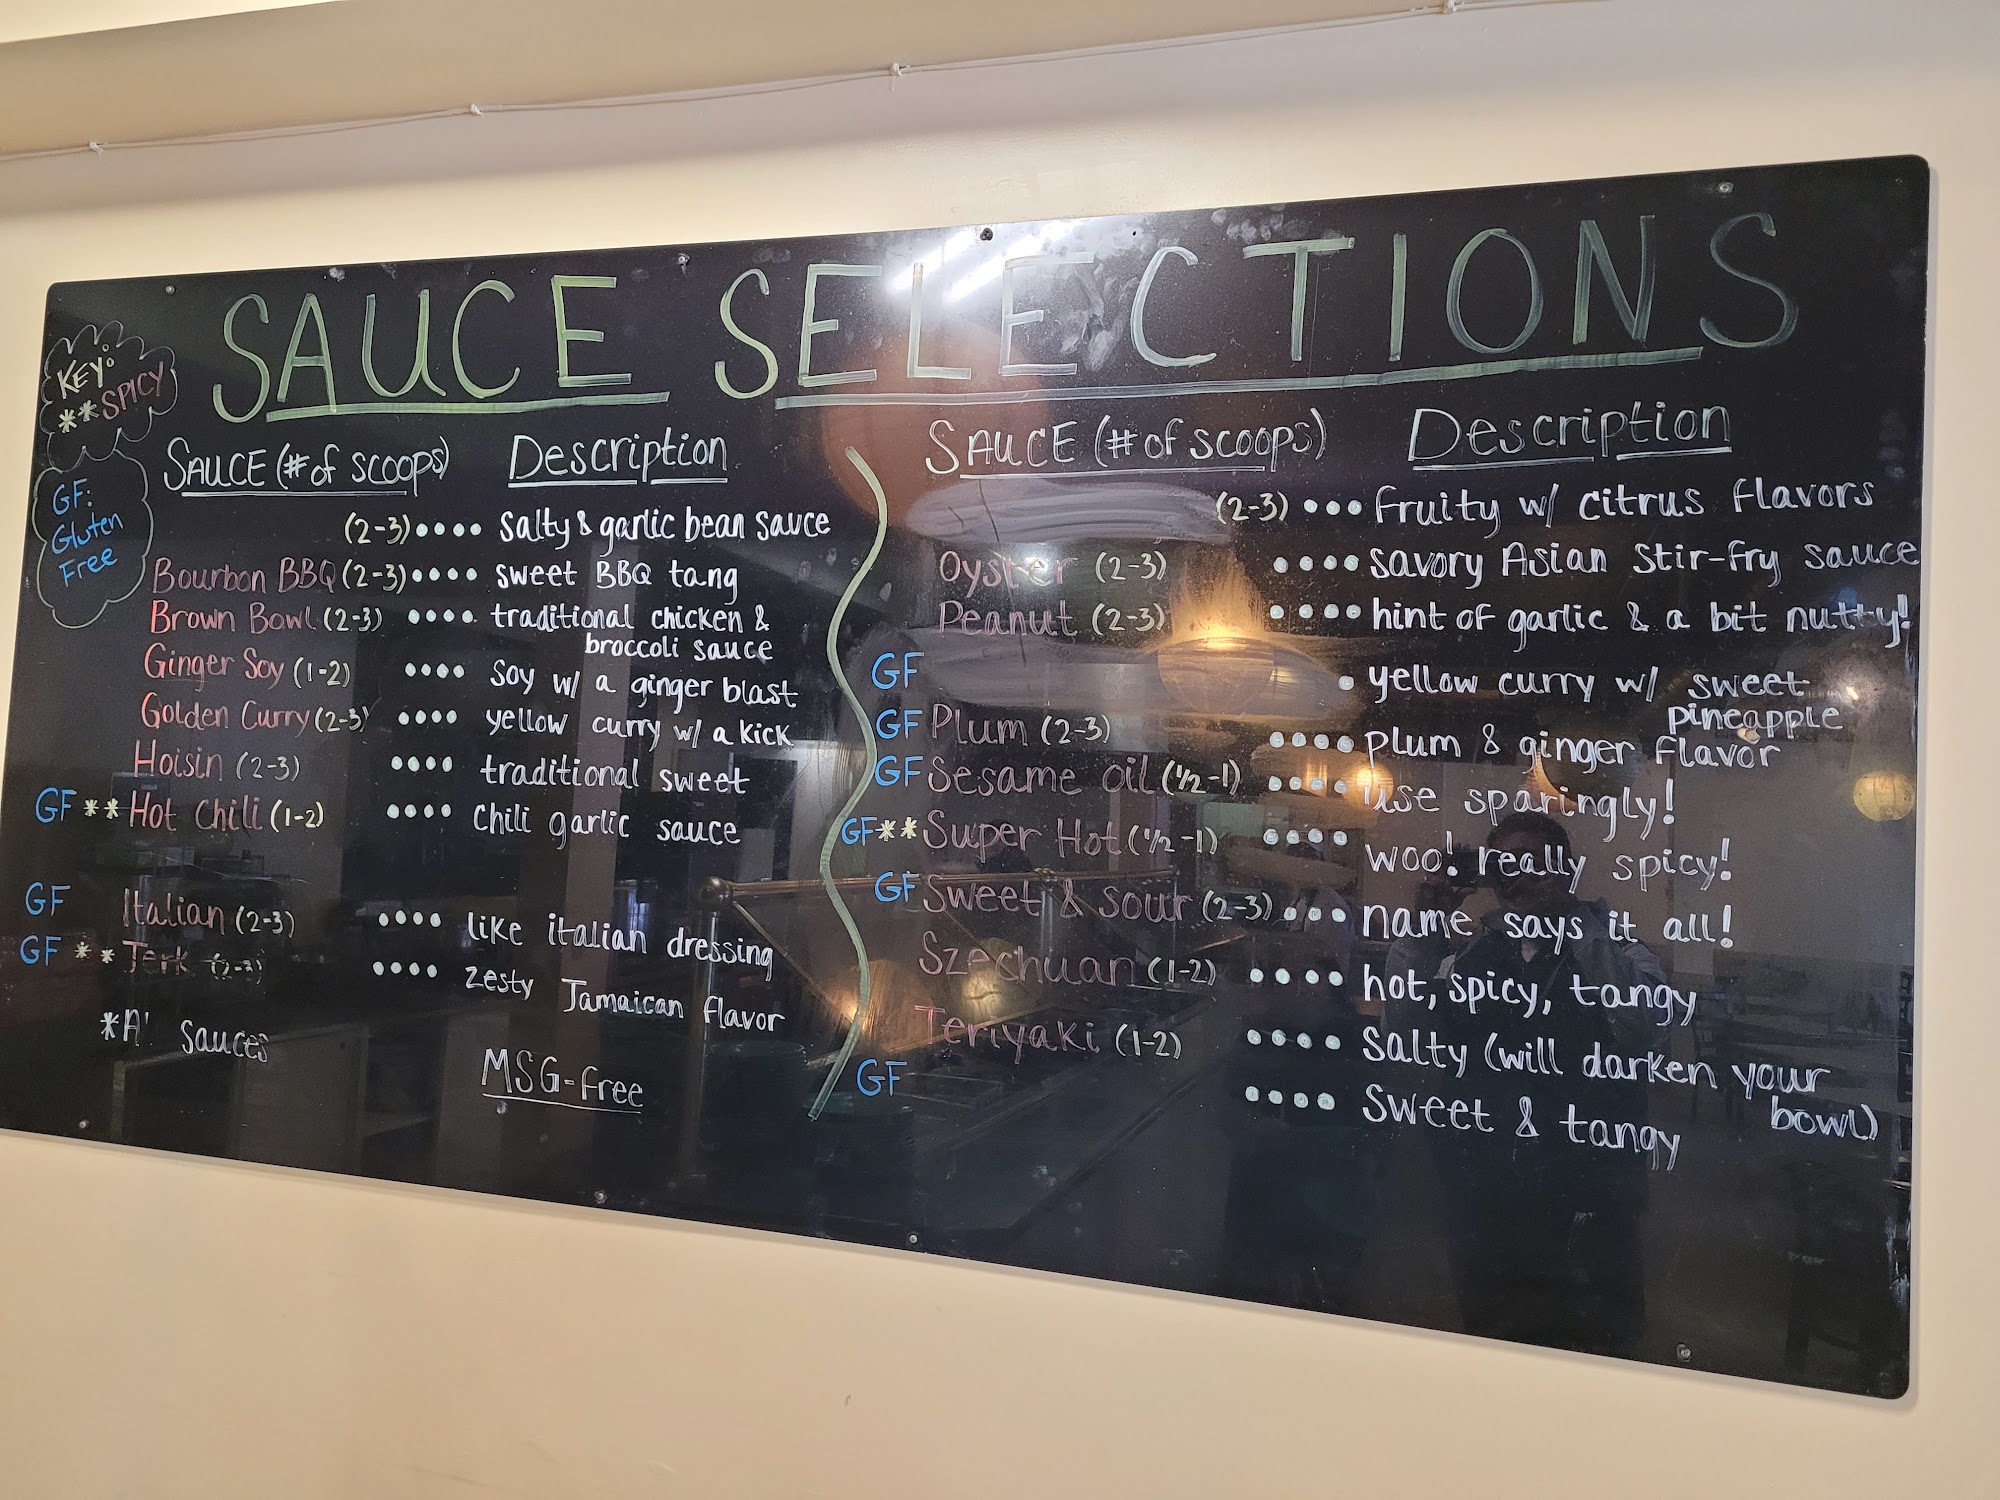 SAUCE SELECTIONS
KEY:
**SPICY
GF:
Gluten
Free
SAUCE (# of scoops) Description
(2-3) •••• salty & garlic bean sauce
Bourbon BBQ (2-3) •••• sweet BBQ tang
Brown Bowl (2-3) •••• traditional chicken &
broccoli sauce
Ginger Soy (1-2) •••• soy w/ a ginger blast
Golden Curry (2-3) •••• yellow curry w/ a kick
Hoisin (2-3) •••• traditional sweet
GF ** Hot Chili (1-2) •••• chili garlic sauce
GF Italian (2-3) •••• like italian dressing
GF ** Jerk (2-3) •••• zesty Jamaican flavor
*A' sauces
MSG-free
SAUCE (# of scoops) Description
(2-3) •••• fruity w/ citrus flavors
Oyster (2-3) •••• savory Asian stir-fry sauce
Peanut (2-3) •••• hint of garlic & a bit nutty!
GF • yellow curry w/ sweet
pineapple
GF Plum (2-3) •••• plum & ginger flavor
GF Sesame oil (1/2-1) •••• use sparingly!
GF** Super Hot (1/2-1) •••• woo! really spicy!
GF Sweet & sour (2-3) •••• name says it all!
Szechuan (1-2) •••• hot, spicy, tangy
Teriyaki (1-2) •••• salty (will darken your
bowl)
GF •••• sweet & tangy